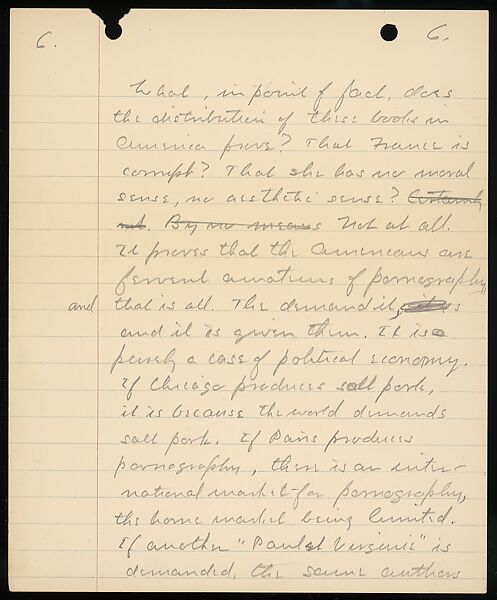 6. 6.
What, in point of fact, does
the distribution of these books in
America prove? That France is
corrupt? That she has no moral
sense, no aesthetic sense? Certainly
not. By no means Not at all.
It proves that the Americans are
fervent amateurs of pornography,
and that is all. They demand it, it is
and it is given them. It is
purely a case of political economy.
If Chicago produces salt pork,
it is because the world demands
salt pork. If Paris produces
pornography, there is an inter-
national market for pornography,
the home market being limited.
If another "Paul et Virginie" is
demanded, the same authors